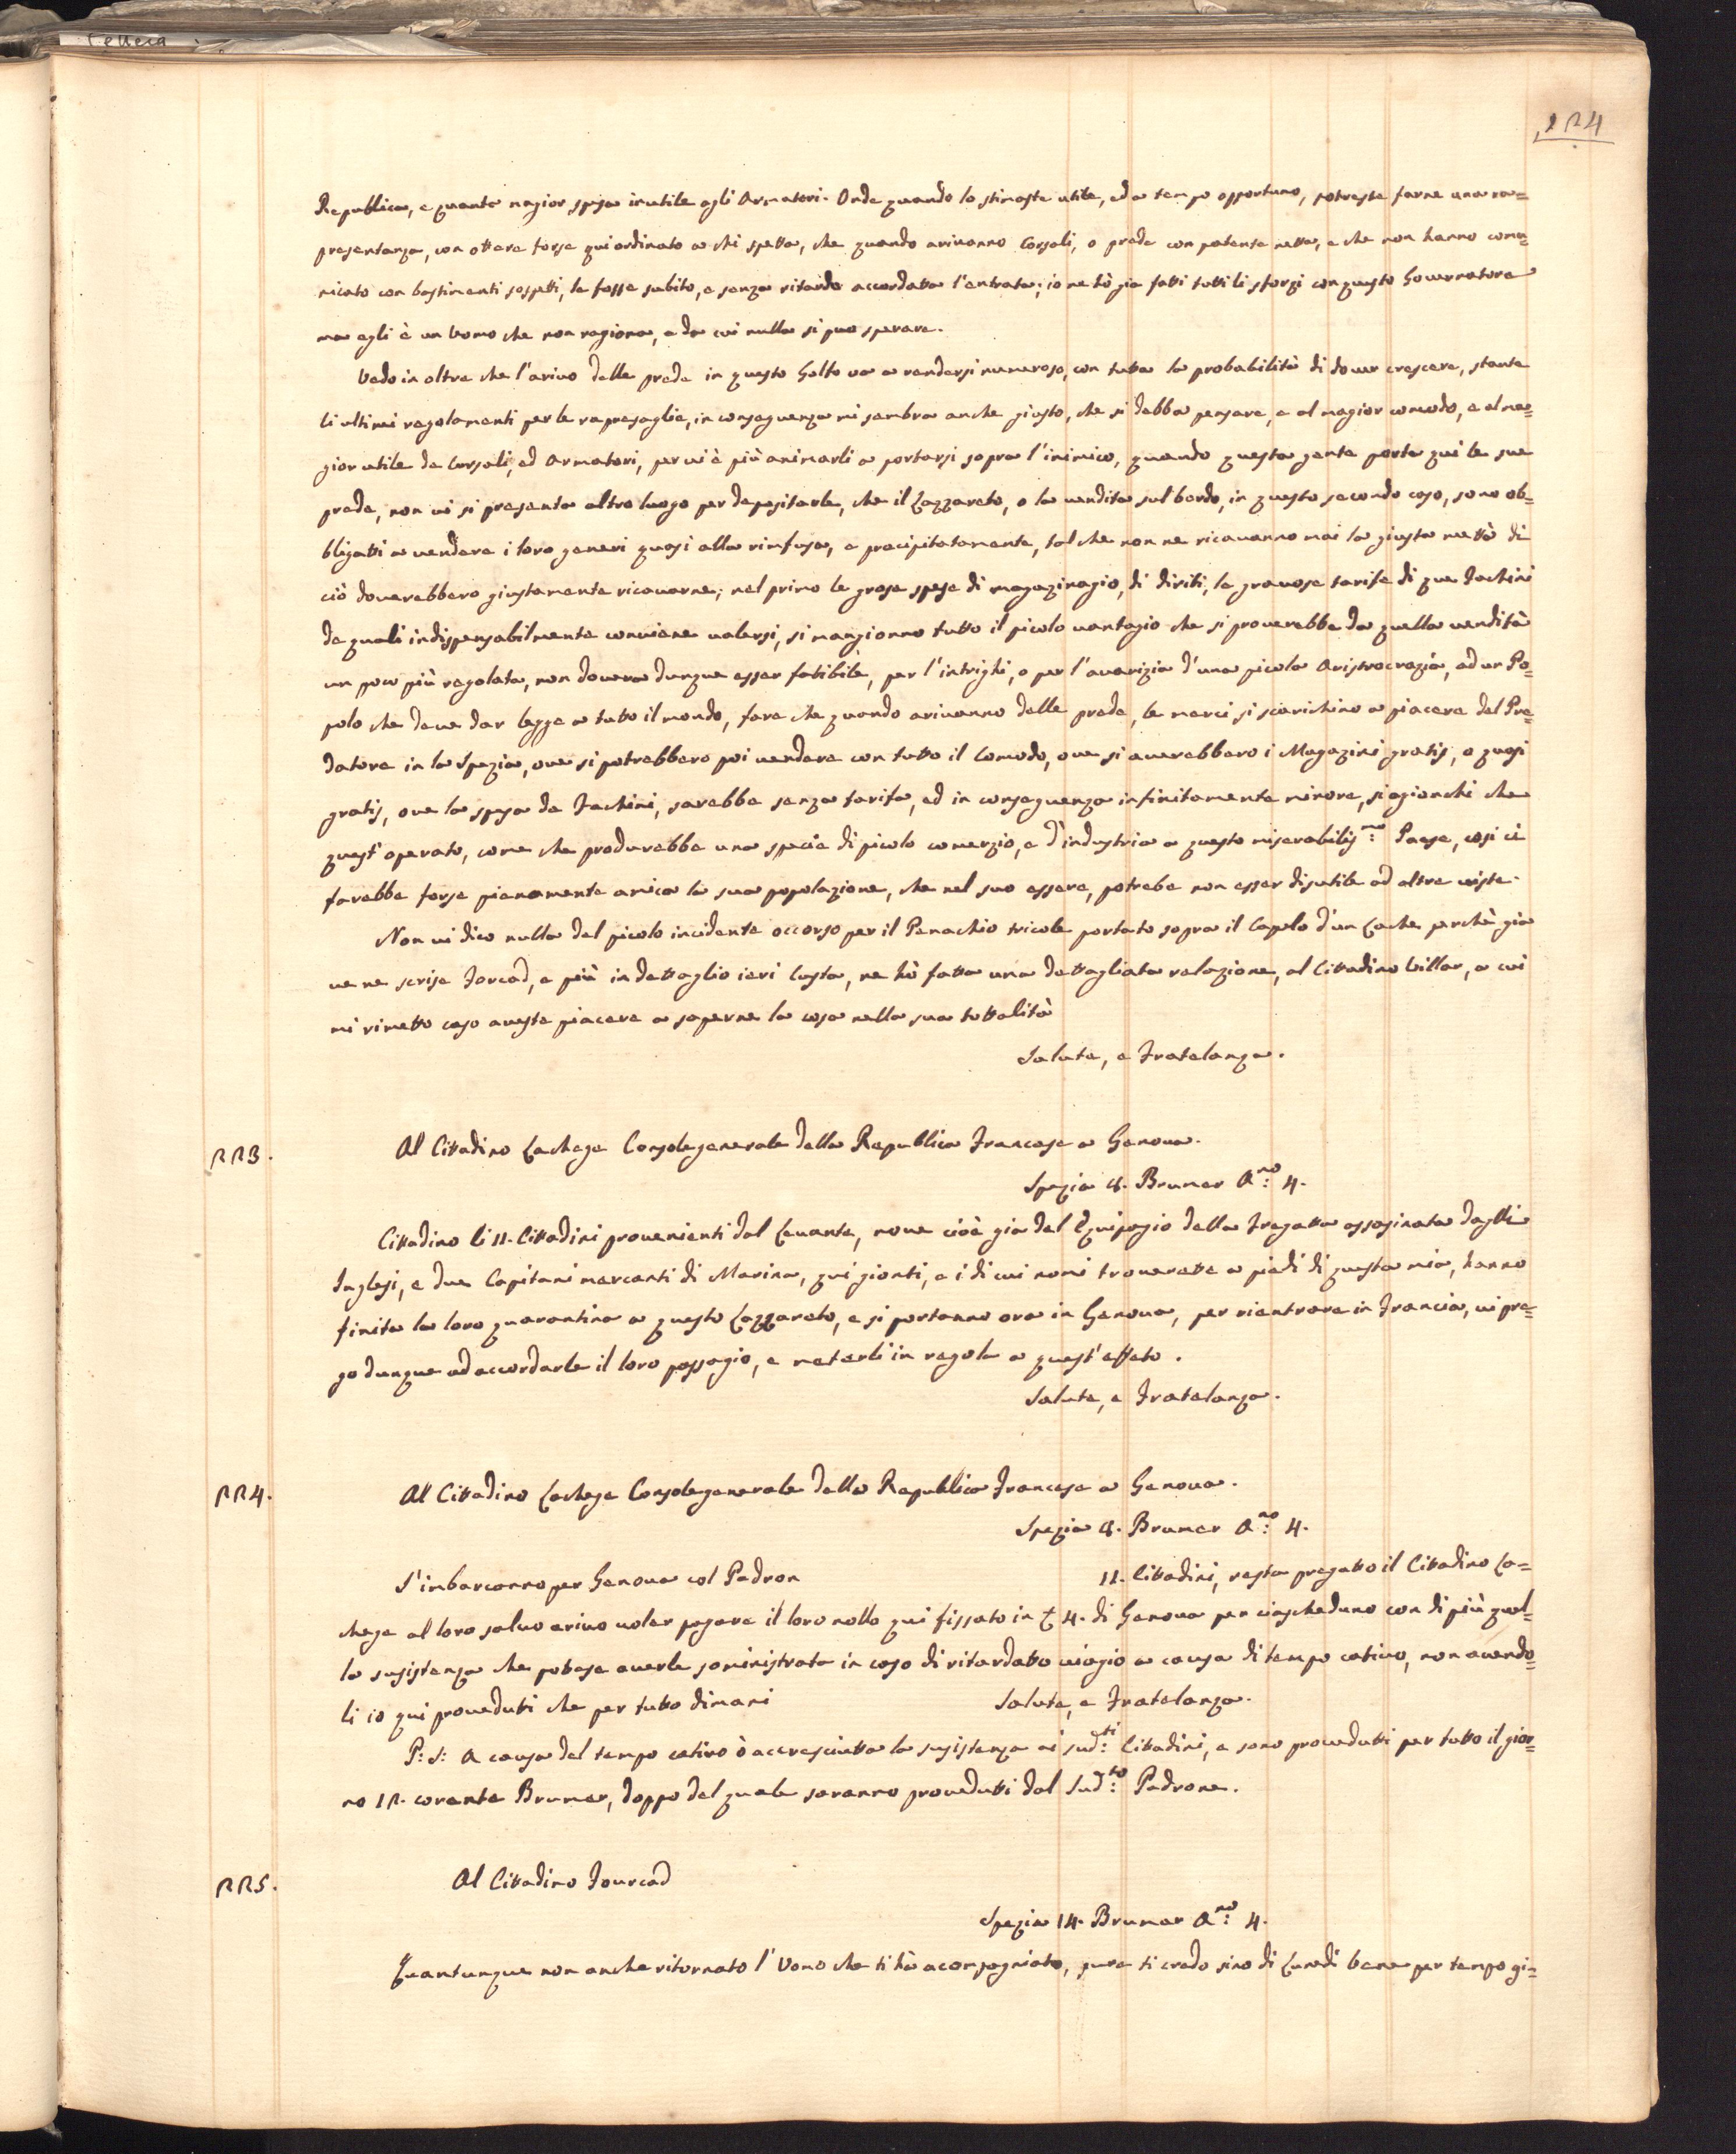 124
Republica, e quanta magior spesa inutile agli Armatori. Onde quando lo stimaste utile, ed a tempo opportuno, potreste farne una ra=
presentanza, con ottere forse qui ordinato a chi spetta, che quando arivanno Corsali, o prede con patente netta, e che non hanno comu=
nicato con bastimenti sospetti, le fosse subito, e senza ritardo accordatta l'entrata; io ne hò gia fatti tutti li sforzi con questo Governatore
ma egli è un Uomo che non ragiona, e da cui nulla si puo sperare.
Vedo in oltre che l'arivo delle prede in questo Golfo va a rendersi numeroso, con tutta la probabilità di dover crescere, stante
li ultimi regolamenti per le rapresaglie, in conseguenza mi sembra anche giusto, che si debba pensare, e al magior comodo, e al ma=
gior utile de Corsali, ed Armatori, per vi è più animarli a portarsi sopra l'inimico, quando questa gente porta qui le sue
prede, non vi si presenta altro luogo per depositarle, che il Lazzareto, o la vendita sul bordo, in questo secondo caso, sono ob=
bligatti a vendere i loro generi quasi alla rinfusa, e precipitatamente, tal che non ne ricavanno mai la giusta mettà di
ciò doverebbero giustamente ricavarne; nel primo le grose spese di magazinagio, di diriti, le gravose tarife di que Fachini
de quali indispensabilmente conviene valersi, si mangionno tutto il picolo vantagio che si proverebbe da quella vendita
un poco più regolata, non dovera dunque esser fatibile, per l'intrighi, o per l'avarizia d'una picola Aristrocrazia, ad un Po=
polo che deve dar legge a tutto il mondo, fare che quando arivanno delle prede, le merci si scarichino a piacere del Pre=
datore in la Spezia, ove si potrebbero poi vendere con tutto il Comodo, ove si averebbero i Magazini gratis, o quasi
gratis, ove la spesa de Fachini, sarebbe senza tarifa, ed in conseguenza infinitamente minore, si agionchi che
quest'operato, come che produrebbe una specie di picolo comerzio, e d'industria a questo miserabilis:mo Paese, cosi ci
farebbe forse pienamente amica la sua popolazione, che nel suo essere, potrebe non esser disutile ad altre viste.
Non vi dico nulla del picolo incidente occorso per il Penachio tricole portato sopra il Capelo d'un Lache perchè gia
ve ne scrise Forcad, e più in dettaglio ieri Custa, ne hò fatta una dettagliata relazione, al Cittadino Villar, a cui
mi rimetto caso aveste piacere a saperne la cosa nella sua tottalità
Salute, e Fratelanza.
223.
Al Cittadino Lachege Consolegenerale della Republica Francese a Genova.
Spezia 8. Brumer A:no 4.
Cittadino li 11. Cittadini provenienti dal Levante, nove cioè gia del Equipagio della Fregatta assasinata dalli
Inglesi, e due Capitani mercanti di Marina, qui gionti, e i di cui nomi troverette a piedi di questa mia, hanno
finita la loro quarantina a questo Lazzareto, e si portanno ora in Genova, per rientrare in Francia, vi pre=
go dunque ad accordarle il loro passagio, e meterli in regola a quest'effeto.
Salute, e Fratelanza.
224.
Al Cittadino Lachege Consolegenerale della Republica Francese a Genova.
Spezia 8. Brumer A:no 4.
S'imbarcanno per Genova col Padron 11. Cittadini, resta pregatto il Cittadino La=
chege al loro salvo arivo voler pagare il loro nollo qui fissato in £ 4. di Genova per ciascheduno con di più quel=
la susistenza che potese averle soministrata in caso di ritardatto viagio a causa di tempo cativo, non avendo=
li io qui proveduti che per tutto dimani Salute, e Fratelanza.
P: S: A causa del tempo cativo ò acresciutta la susistenza ai sud:ti Cittadini, e sono provedutti per tutto il gior=
no 12. corente Brumer, doppo del quale saranno provedutti dal Sud:to Padrone.
225.
Al Cittadino Fourcad
Spezia 14. Brumer A:no 4.
Quantunque non anche ritornato l'Uomo che ti hà acompagniato, pure ti credo sino di Lunedi bene per tempo gi=